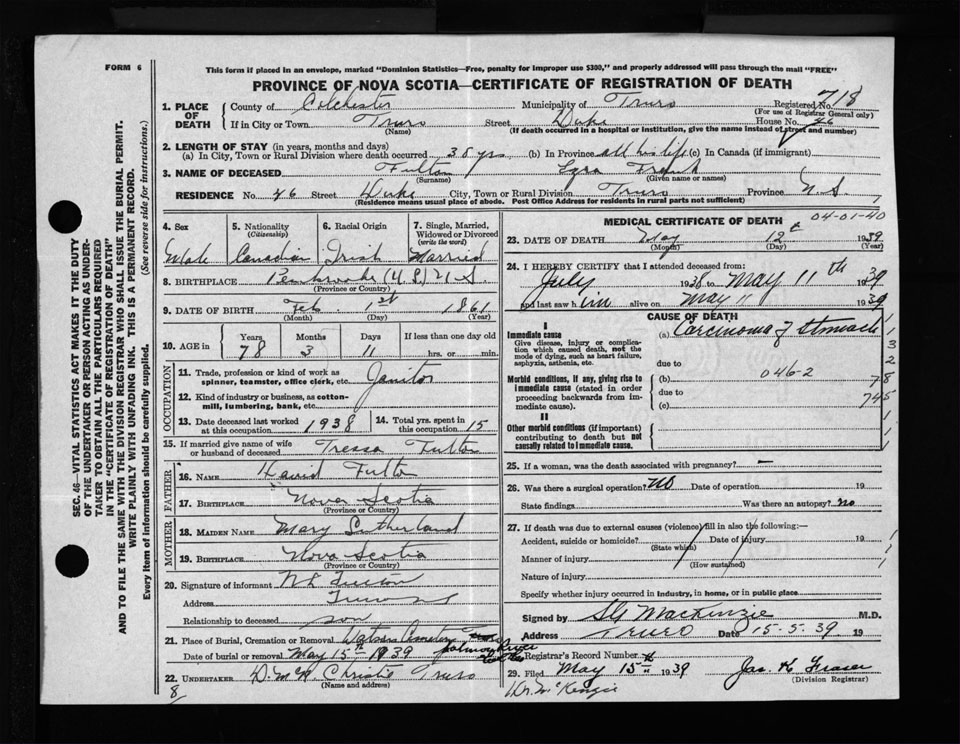 FORM 6
This form if placed in an envelope, marked "Dominion Statistics—Free, penalty for improper use $300," and properly addressed will pass through the mail "FREE"
PROVINCE OF NOVA SCOTIA—CERTIFICATE OF REGISTRATION OF DEATH
SEC. 46—VITAL STATISTICS ACT MAKES IT THE DUTY
OF THE UNDERTAKER OR PERSON ACTING AS UNDER-
TAKER TO OBTAIN ALL THE PARTICULARS REQUIRED
IN THE "CERTIFICATE OF REGISTRATION OF DEATH"
AND TO FILE THE SAME WITH THE DIVISION REGISTRAR WHO SHALL ISSUE THE BURIAL PERMIT.
WRITE PLAINLY WITH UNFADING INK. THIS IS A PERMANENT RECORD.
Every item of information should be carefully supplied. (See reverse side for instructions.)
1. PLACE OF DEATH County of Colchester Municipality of Truro Registered No. 718
(For use of Registrar General only)
If in City or Town Truro Street Duke House No. 46
(Name) (If death occurred in a hospital or institution, give the name instead of street and number)
2. LENGTH OF STAY (in years, months and days)
(a) In City, Town or Rural Division where death occurred 38 yrs (b) In Province all his life (c) In Canada (if immigrant)
3. NAME OF DECEASED Fulton Ezra Frank
(Surname) (Given name or names)
RESIDENCE No. 46 Street Duke City, Town or Rural Division Truro Province N.S.
(Residence means usual place of abode. Post Office Address for residents in rural parts not sufficient)
4. Sex 5. Nationality (Citizenship) 6. Racial Origin 7. Single, Married, Widowed or Divorced (write the word)
Male Canadian Irish Married
8. BIRTHPLACE Pembrooke N.S.
(Province or Country)
9. DATE OF BIRTH Feb. 1st 1861
(Month) (Day) (Year)
10. AGE in Years Months Days If less than one day old
78 3 11 hrs. or min.
OCCUPATION
11. Trade, profession or kind of work as spinner, teamster, office clerk, etc. Janitor
12. Kind of industry or business, as cotton-mill, lumbering, bank, etc.
13. Date deceased last worked at this occupation 1938 14. Total yrs. spent in this occupation 15
15. If married give name of wife or husband of deceased Tressa Fulton
FATHER
16. NAME David Fulton
17. BIRTHPLACE Nova Scotia
(Province or Country)
MOTHER
18. MAIDEN NAME Mary Sutherland
19. BIRTHPLACE Nova Scotia
(Province or Country)
20. Signature of informant Fulton
Address Truro NS
Relationship to deceased son
21. Place of Burial, Cremation or Removal Watsons Cemetery
Date of burial or removal May 15th 1939
22. UNDERTAKER Christie Truro
(Name and address)
8/
MEDICAL CERTIFICATE OF DEATH
04-01-40
23. DATE OF DEATH May 12th 1939
(Month) (Day) (Year)
24. I HEREBY CERTIFY that I attended deceased from:
July 1938 to May 11th 1939
and last saw him alive on May 11 1939
CAUSE OF DEATH
I
Immediate cause
Give disease, injury or complication which caused death, not the mode of dying, such as heart failure, asphyxia, asthenia, etc.
(a) Carcinoma of Stomach
due to
046-2
Morbid conditions, if any, giving rise to immediate cause (stated in order proceeding backwards from immediate cause).
(b)
due to
(c)
II
Other morbid conditions (if important) contributing to death but not causally related to immediate cause.
1
3
2
78
745
25. If a woman, was the death associated with pregnancy? —
26. Was there a surgical operation? No Date of operation 19
State findings Was there an autopsy? no
27. If death was due to external causes (violence) fill in also the following:—
Accident, suicide or homicide? Date of injury 19
(State which)
Manner of injury
(How sustained)
Nature of injury
Specify whether injury occurred in industry, in home, or in public place
Signed by MacKenzie M.D.
Address Truro Date 15-5-39 19
28. Registrar's Record Number
29. Filed May 15th 1939 Jas. H. Fraser
(Division Registrar)
Dr. McKenzie